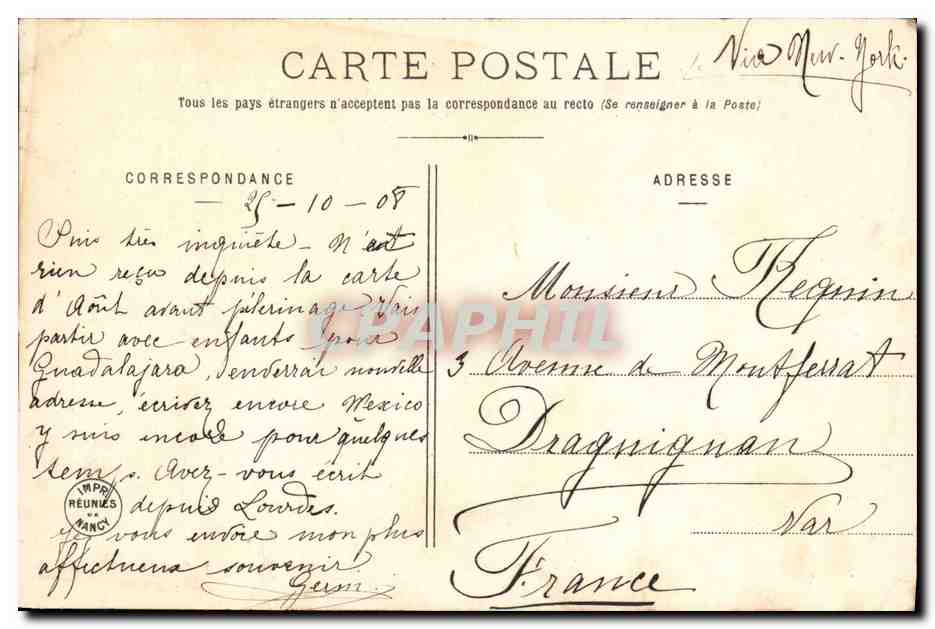 Via New-York.
CARTE POSTALE
Tous les pays étrangers n'acceptent pas la correspondance au recto (Se renseigner à la Poste)
CORRESPONDANCE
25-10-08
Suis très inquiète - N'
rien reçu depuis la carte
d'Août avant pèlerinage. Vais
partir avec enfants pour
Guadalajara, enverrai nouvelle
adresse, écrivez encore Mexico
y suis encore pour quelques
tem s. Avez-vous écrit
depuis Lourdes.
vous envoie mon plus
affectueux souvenir
Germ.
IMPR
RÉUNIES
DE
NANCY
ADRESSE
Monsieur Requin
3 Avenue de Montferrat
Draguignan
Var
France
CPAPHIL